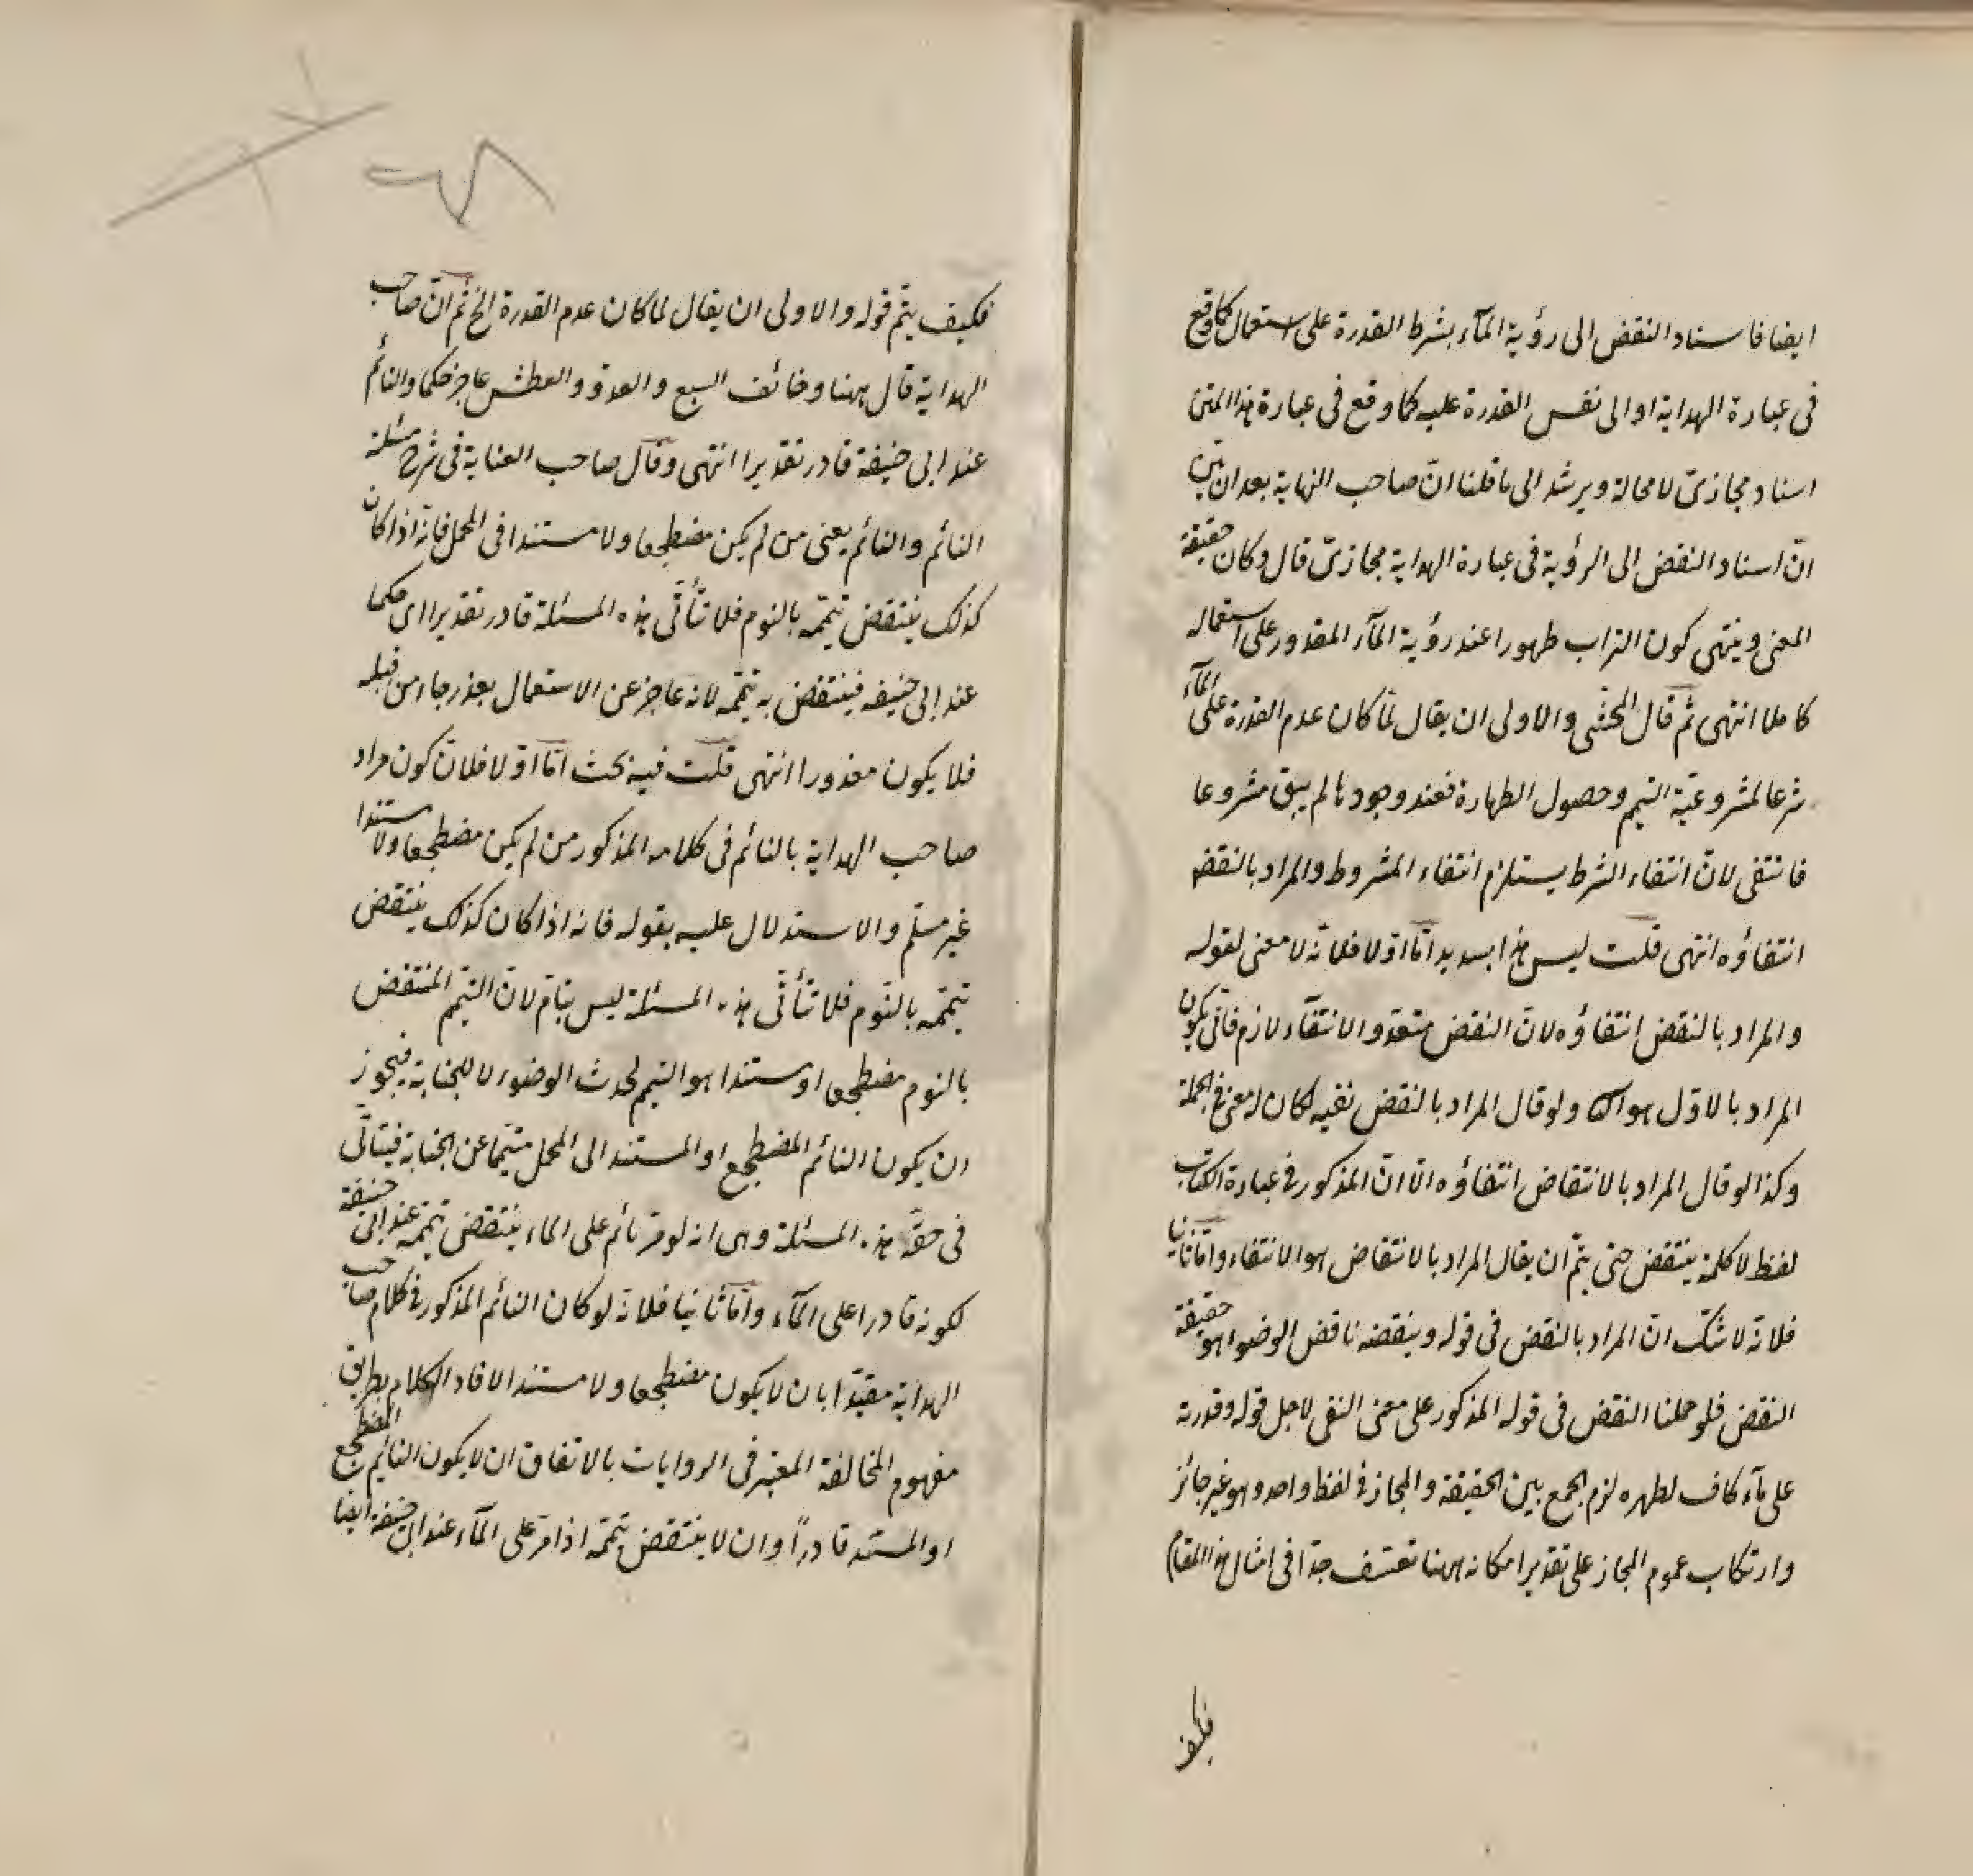 ايضا فاسناد النقض الى رؤية المآء بشرط القدرة على استعمال كما وقع
فى عبارة الهداية او الى نفس القدرة عليه كما وقع فى عبارة هذا المتن
اسناد مجازىّ لا محالة ويرشد الى ما قلنا انّ صاحب النهاية بعد ان بيّن
انّ اسناد النقض الى الرؤية فى عبارة الهداية مجازىّ قال وكان حقيقة
المعنى وينتهى كون التراب طهورا عند رؤية المآء المقدور على استعماله
كاملا انتهى ثم قال المحشّى والاولى ان يقال لمّا كان عدم القدرة على المآء
شرعا لمشروعيّة التيمم وحصول الطهارة فعند وجودها لم يبق مشروعا
فانتفى لانّ انتفاء الشرط يستلزم انتفاء المشروط والمراد بالنقض
انتفاؤه انتهى قلت ليس هذا بسديد امّا اوّلا فلانّه لا معنى لقوله
والمراد بالنقض انتفاؤه لانّ النقض متعدّ والانتقآء لازم فانّى يكون
المراد بالاوّل هو ولو قال المراد بالنقض نفيه لكان له معنى فى الجملة
وكذا لو قال المراد بالانتقاض انتفاؤه الّا انّ المذكور فى عبارة الكتاب
لفظ لا كلمة ينتقض حتى يتمّ ان يقال المراد بالانتقاض هو الانتفاء وامّا ثانيا
فلانّه لا شكّ انّ المراد بالنقض فى قوله وينقضه ناقض الوضوء هو حقيقة
النقض فلو حملنا النقض فى قوله المذكور على معنى النفى لاجل قوله وقدرته
على مآء كاف لطهره لزم الجمع بين الحقيقة والمجاز فى لفظ واحد وهو غير جائز
وارتكاب عموم المجاز على تقدير امكانه ههنا تعسّف جدّا فى امثال هذا المقام
فكيف
فكيف يتمّ قوله والاولى ان يقال لما كان عدم القدرة الخ ثم انّ صاحب
الهداية قال ههنا وخائف السبع والعدوّ والعطش عاجز حكما والنائم
عند ابى حنيفة قادر تقديرا انتهى وقال صاحب العناية فى شرح مسئلة
النائم والنائم يعنى من لم يكن مضطجعا ولا مستندا فى المحمل فانّه اذا كان
كذلك ينتقض تيمّمه بالنوم فلا تتأتّى هذه المسئلة قادر تقديرا اى حكما
عند ابى حنيفه فينتقض به تيمّمه لانه عاجز عن الاستعمال بعذر جاء من قبله
فلا يكون معذورا انتهى قلت فيه بحث امّا اوّلا فلانّ كون مراد
صاحب الهداية بالنائم فى كلامه المذكور من لم يكن مضطجعا ولا مستندا
غير مسلّم والاستدلال عليه بقوله فانه اذا كان كذلك ينتقض
تيمّمه بالنّوم فلا تتأتّى هذه المسئلة ليس بتامّ لانّ التيمّم المنتقض
بالنوم مضطجعا او مستندا هو التيمم لحدث الوضوء لا للجنابة فيجوز
ان يكون النائم المضطجع او المستند الى المحمل متيمّما عن الجنابة فيتأتّى
فى حقّه هذه المسئلة وهى انه لو مرّ نائم على الماء ينتقض تيمّمه عند ابى حنيفة
لكونه قادرا على المآء وامّا ثانيا فلانّه لو كان النائم المذكور فى كلام صاحب
الهداية مقيّدا بان لا يكون مضطجعا ولا مستندا لافاد الكلام بطريق
مفهوم المخالفة المعتبر فى الروايات بالاتفاق ان لا يكون النائم المضطجع
او المستند قادراً وان لا ينتقض تيمّمه اذا مرّ على المآء عند ابى حنيفة ايضا